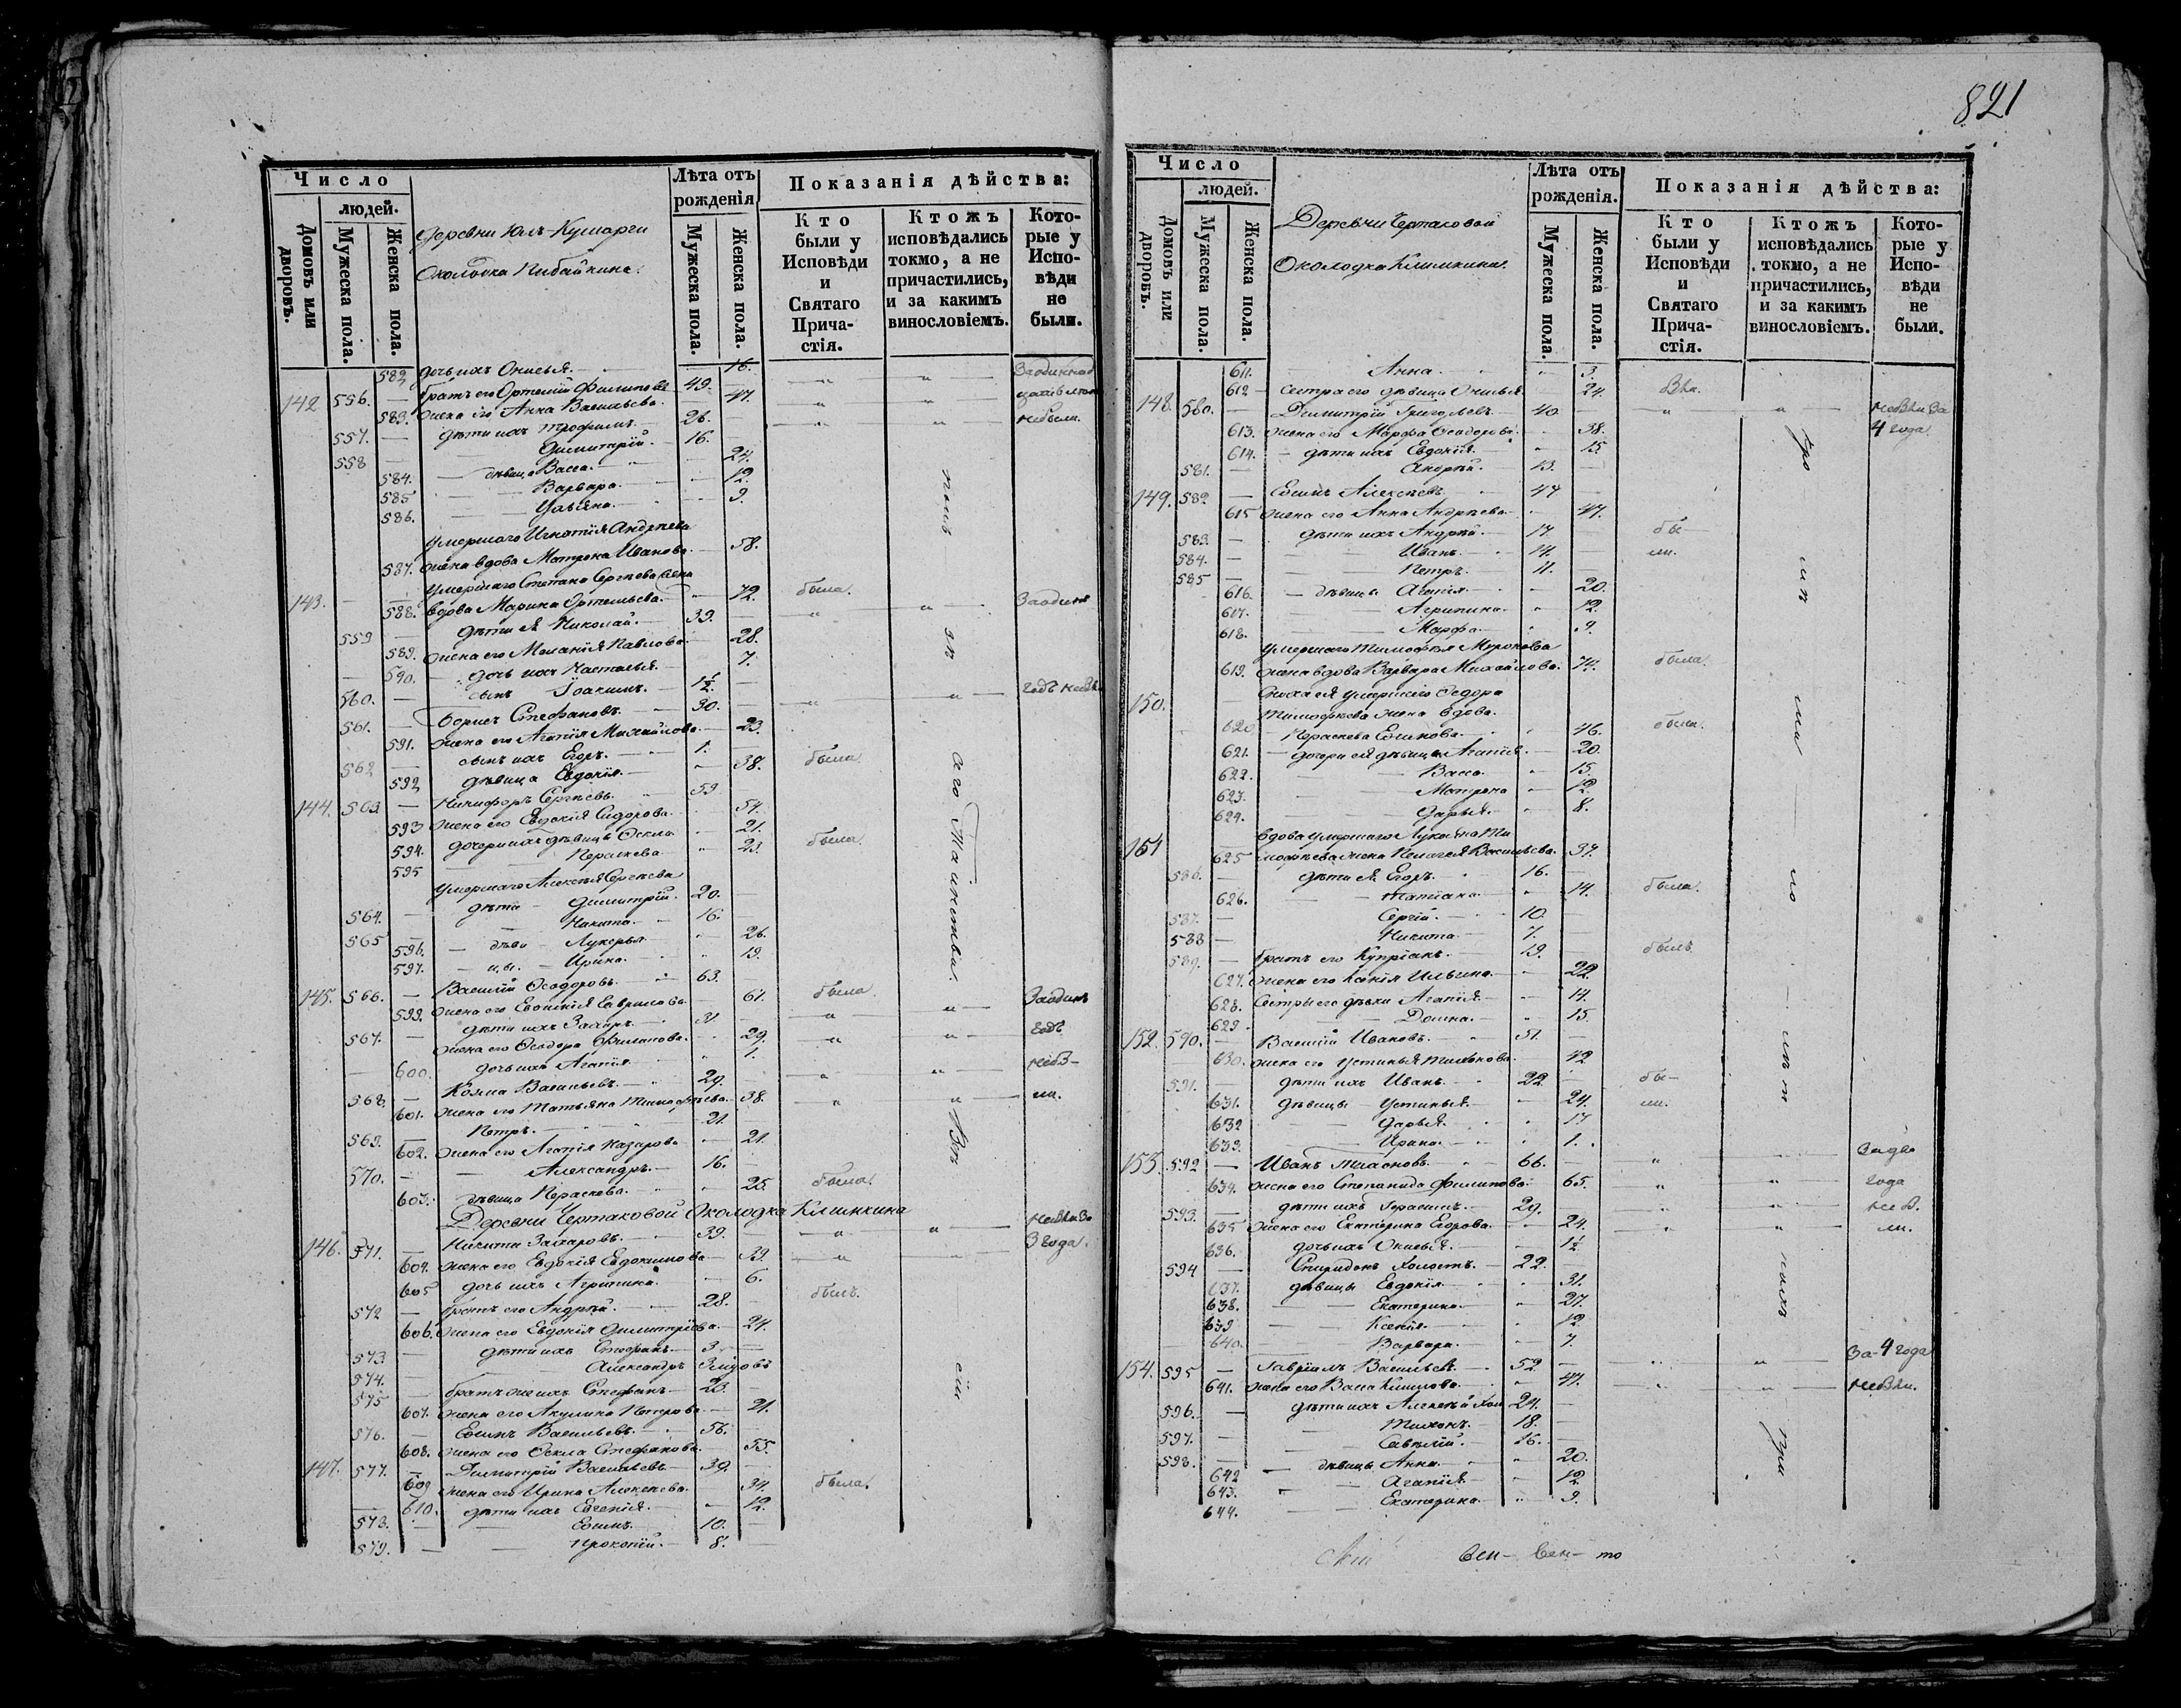 Число
людей.
Домовъ или дворовъ.
Мужеска пола.
Женска пола.
Деревни Юлъ-Кушарги
Околодка Кибайкина.
Лѣта отъ рожденія
Мужеска пола.
Женска пола.
Показанія дѣйства:
Кто были у Исповѣди и Святаго Причастія.
Ктожъ исповѣдались токмо, а не причастились, и за какимъ винословіемъ.
Которые у Исповѣди не были.
582 дочь ихъ Онисья. 16.
142 556. братъ его Артемій Филиповъ 49.
583. жена его Анна Васильева. 47.
557. дѣти ихъ Трофимъ. 26.
558 Димитрій. 16.
584. дѣвица Васса. 24.
585 Варвара. 12.
586. Ульяна. 9.
умершаго Игнатія Андреева
587. жена вдова Матрона Иванова. 58.
умершаго Степана Сергѣева жена
143. 588. вдова Марина Артемьева. 72. была.
559 дѣти ея Николай. 39.
589. жена его Меланія Павлова. 28.
590. дочь ихъ Настасья. 7.
560. сынъ Іоакимъ. 1½.
561. Борисъ Стефановъ. 30.
591. жена его Агапія Михайлова. 23.
562 сынъ ихъ Егоръ. 1.
592 дѣвица Евдокія. 38. была
144. 563 Никифоръ Сергѣевъ. 59
593 жена его Евдокія Сидорова. 54.
594. дочери ихъ дѣвицы Фекла 21.
595 Параскева 23. была.
умершаго Алексѣя Сергѣева
564. дѣти Димитрій. 20.
565 Никита 16.
596. дѣви Лукерья 26.
597. цы. Ирина. 19.
145. 566. Василій Феодоровъ. 63.
599. жена его Евдокія Гаврилова 61. была
567. дѣти ихъ Захаръ. 31
жена его Феодора Филипова. 29.
600. дочь ихъ Агапія 1.
568. Козма Васильевъ. 29.
601. жена его Татьяна Тимофѣева. 38.
569. Петръ. 21.
602. жена его Агапія Назарова 21.
570. Александръ. 16.
603. дѣвица Параскева. 25. была.
Деревни Чертаковой Околодка Климкина
146. 571. Никита Захаровъ. 39.
604. жена его Евдокія Евдокимова 29
3 года.
605 дочь ихъ Агрипина. 6.
572 братъ его Андрей. 28. былъ.
606. жена его Евдокія Димитріева. 24.
573 дѣти ихъ Стефанъ. 3
574. Александръ
575 братъ же ихъ Стефанъ 23.
607. жена его Акулина Петрова 21.
576. Ефимъ Васильевъ. 56.
608. жена его Фекла Стефанова. 55.
147. 577. Димитрій Васильевъ 39.
609 жена его Ирина Алексѣева. 34. была.
610. дѣти ихъ Евгенія. 12.
573. Ефимъ. 10.
579. Прокопій. 8.
Таинства.
821
Число
людей.
Домовъ или дворовъ.
Мужеска пола.
Женска пола.
Деревни Чертаковой
Околодка Климкина.
Лѣта отъ рожденія.
Мужеска пола.
Женска пола.
Показанія дѣйства:
Кто были у Исповѣди и Святаго Причастія.
Ктожъ исповѣдались токмо, а не причастились, и за какимъ винословіемъ.
Которые у Исповѣди не были.
611. Анна. 3.
612 Сестра его дѣвица Онисья 24.
148. 580. Димитрій Григорьевъ. 40.
4 года.
613. жена его Марфа Феодорова. 38.
614. дѣти ихъ Евдокія. 15
581. Андрей. 13.
149. 582 Ефимъ Алексѣевъ. 47
615 жена его Анна Андрѣева 47.
583. дѣти ихъ Андрей. 17. бы-
584. Иванъ. 14. ли.
585 Петръ. 11.
616. дѣвицы Агапія 20.
617. Агрипина. 12.
618. Марфа. 9.
умершаго Тимофея Миронова
619. жена вдова Варвара Михайлова. 74. была.
150. Сноха ея умершаго Федора
Тимофѣева жена вдова.
620 Параскева Ефимова. 46. была.
621. дочери ея дѣвицы Агапія. 20.
622. Васса. 15.
623. Матрона 12.
624. Дарья. 8.
151 вдова умершаго Лукьяна Ти
625 мофѣева жена Пелагея Васильева. 37.
586. дѣти ея Егоръ. 16.
626. Татіана. 14. была.
587. Сергій. 10.
588 Никита. 7.
589. братъ его Купріанъ. 19. былъ
627. жена его Ксенія Ильина. 22.
628. Сестры его дѣвки Агапія. 17.
629 Домна. 15.
152. 590. Василій Ивановъ. 51.
630. жена его Устинья 42
591. дѣти ихъ Иванъ. 22. бы-
631. дѣвицы Устинья. 24. ли.
632 Дарья. 17
633. Ирина. 1.
153. 592 Иванъ Тихоновъ. 66.
634. жена его Степанида Филипова. 65. года
593. дѣти ихъ Герасимъ. 29.
635 жена его Екатерина Егорова. 24.
636. дочь ихъ Онисья. 1½
594 Спиридонъ Холостъ. 22.
637. дѣвицы Евдокія. 31.
638. Екатерина. 27.
639 Ксенія. 12
640. Варвара. 7.
154. 595 Гавріилъ Васильевъ. 52. за 4 года
641. жена его Васса Климова. 47.
596. дѣти ихъ Алексѣй Хол 24.
597. Тихонъ. 18.
598. Савелій. 16.
642 дѣвицы Анна. 20.
643. Агапія. 12
644. Екатерина. 9.